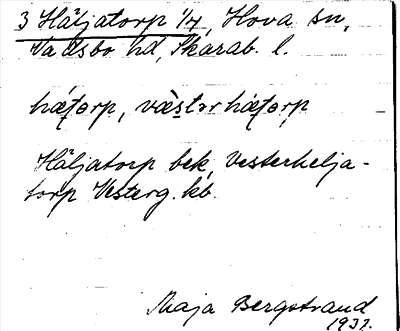 3 Häljatorp 1/4, Hova sn,
Vadsbo hd, Skarab. l.
hæt̯orp, væ̀stər hæt̯orp
Häljatorp bek, Vesterhelja-
torp Vesterg. kb.
Maja Bergstrand
1937.